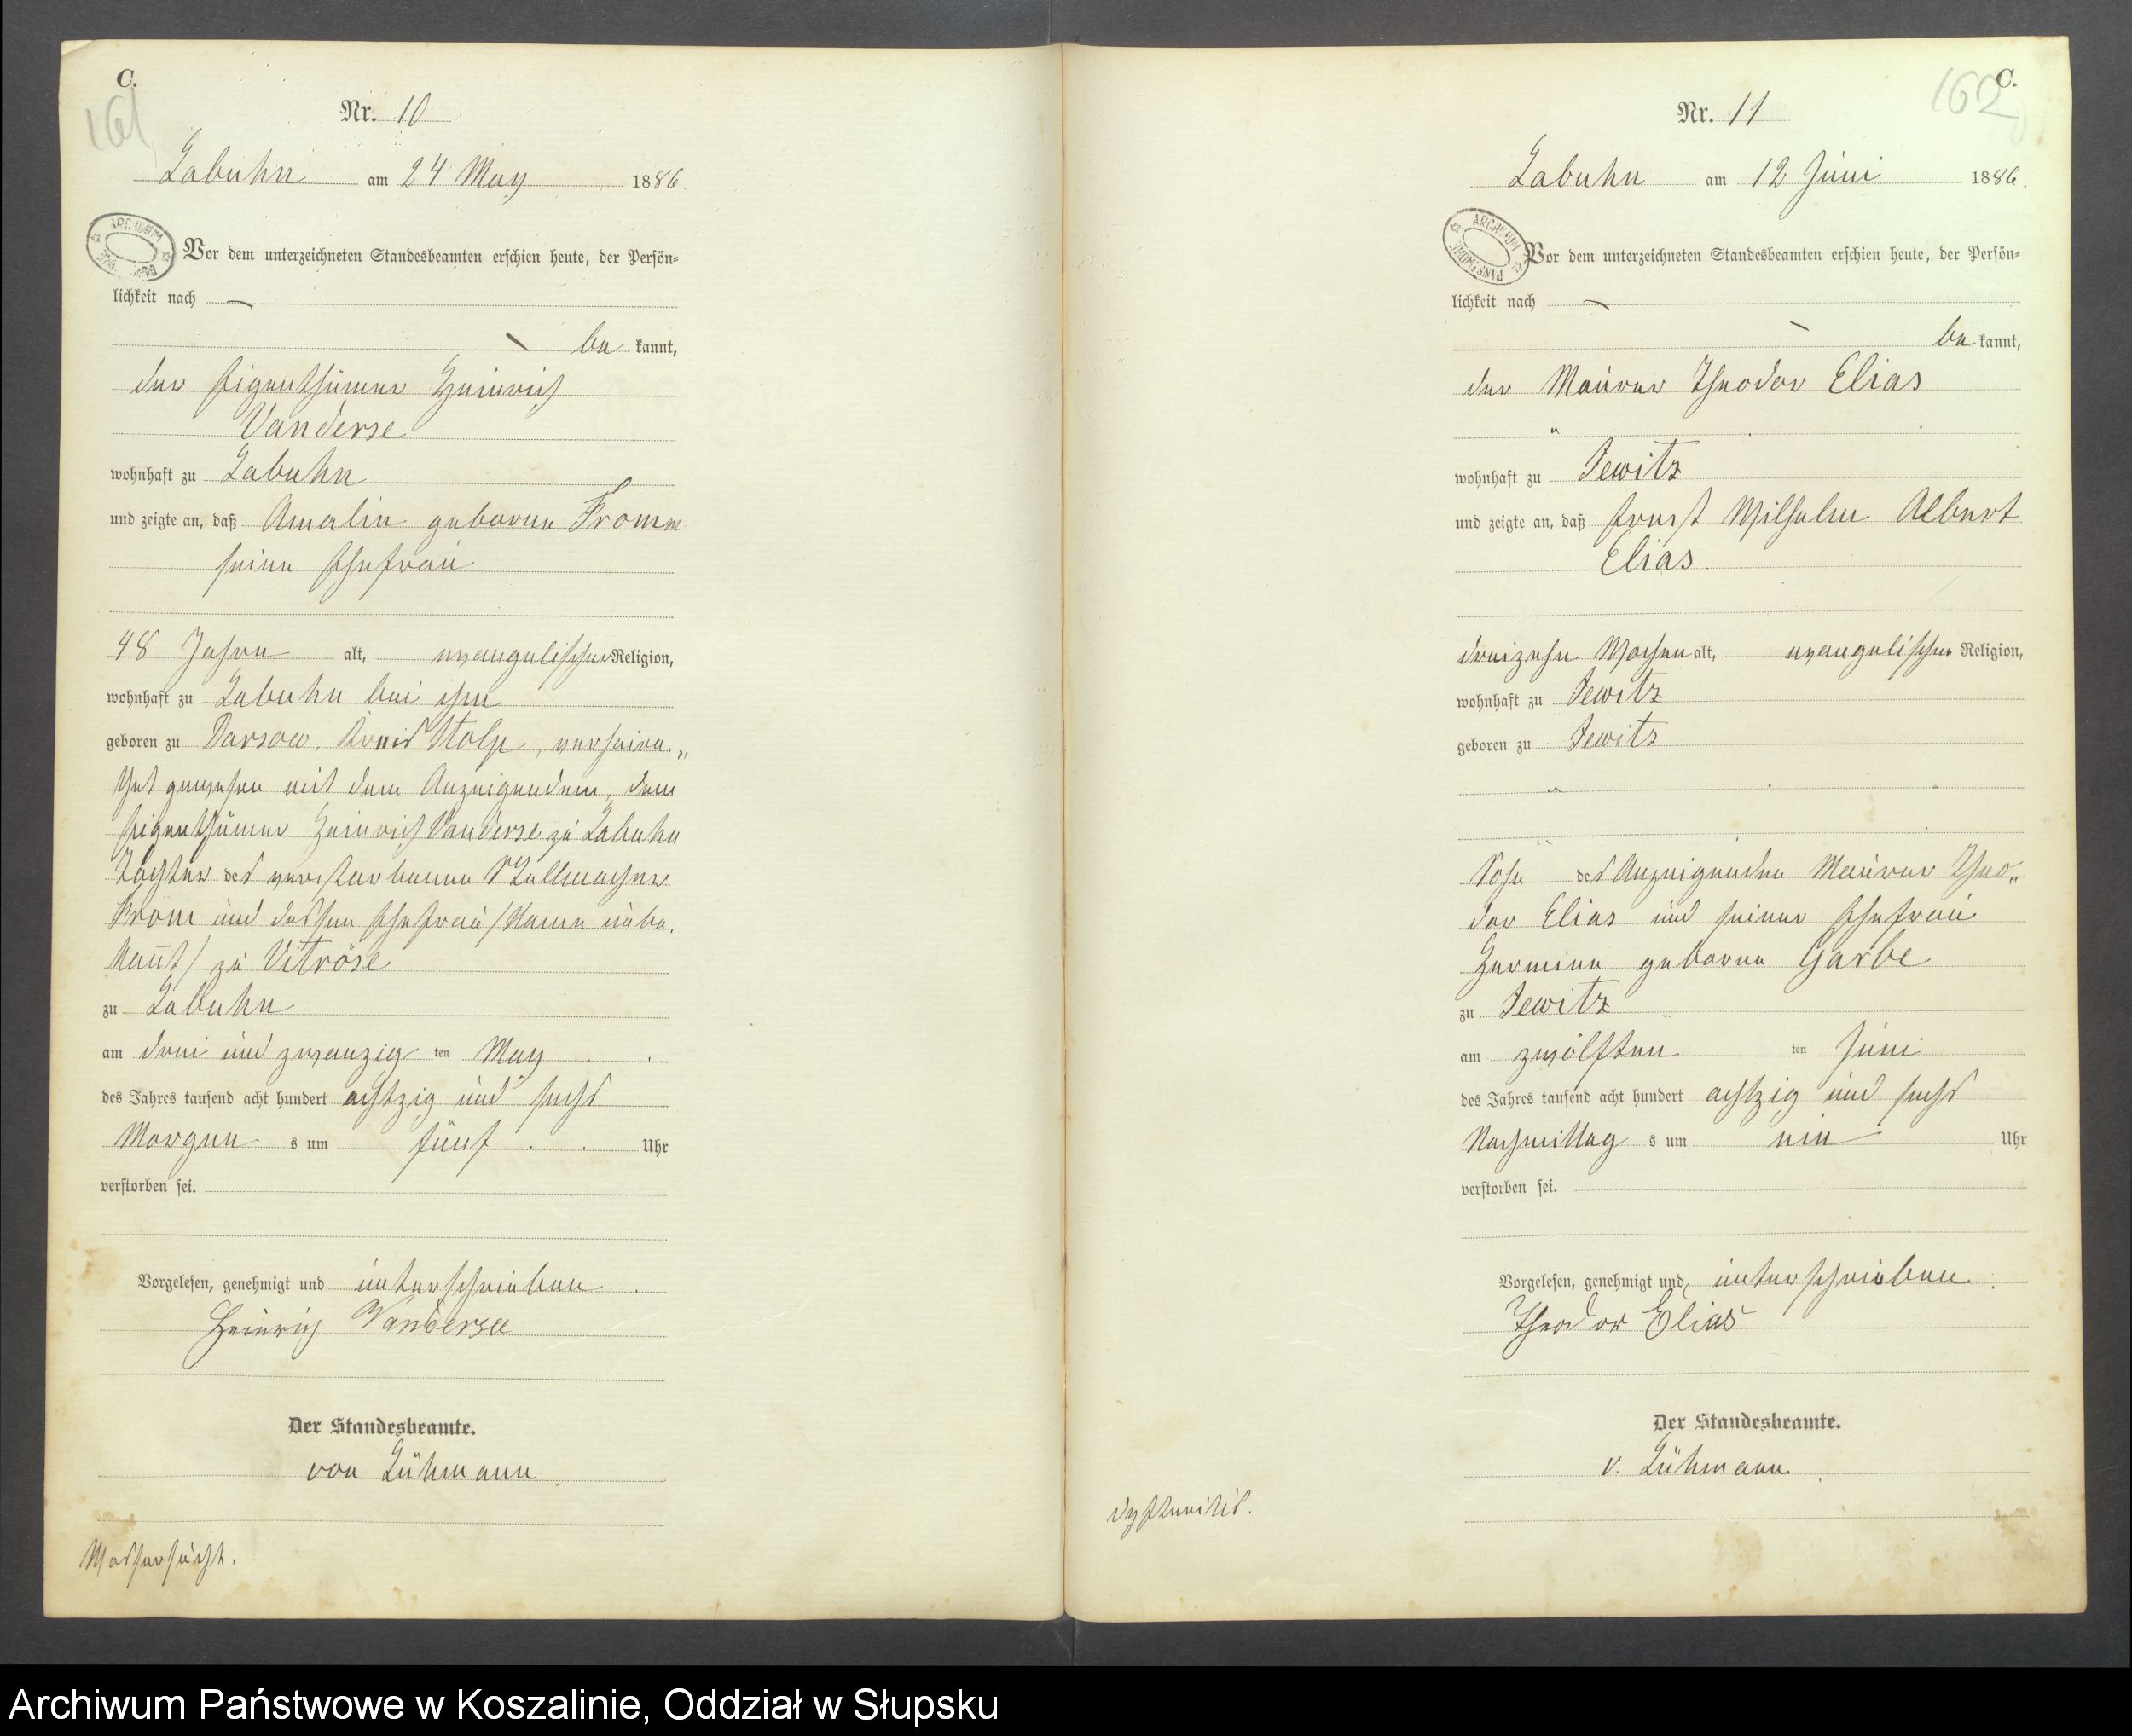 C.
161
Nr. 10
Labuhn am 24 May 1886.
ARCHIWUM
Vor dem unterzeichneten Standesbeamten erschien heute, der Persön-
lichkeit nach
be kannt,
der Eigenthümer Heinrich
Vanderse
wohnhaft zu Labuhn
und zeigte an, daß Amalie geborne Fromm
seine Ehefrau
48 Jahre alt, evangelischer Religion,
wohnhaft zu Labuhn bei ihm
geboren zu Darsow, Kreis Stolp, verheira„
thet gewesen mit dem Anzeigendem, dem
Eigenthümer Heinrich Vanderse zu Labuhn
Tochter des verstorbenen Stellmacher
From und dessen Ehefrau /Name unbe.
kannt/ zu Vitröse
zu Labuhn
am drei und zwanzig ten May
des Jahres tausend acht hundert achtzig und sechs
Morgen s um fünf Uhr
verstorben sei.
Vorgelesen, genehmigt und unterschrieben.
Heinrich Vandersee
Der Standesbeamte.
von Lühmann
Wassersucht.
C.
162
Nr. 11
Labuhn am 12 Juni 1886.
ARCHIWUM PAŃSTWOWE
Vor dem unterzeichneten Standesbeamten erschien heute, der Persön-
lichkeit nach
be kannt,
der Maurer Theodor Elias
wohnhaft zu Jewitz
und zeigte an, daß Ernst Wilhelm Albert
Elias.
dreizehn Wochen alt, evangelischer Religion,
wohnhaft zu Jewitz
geboren zu Jewitz
Sohn des Anzeigenden Maurer Theo„
dor Elias und seiner Ehefrau
Hermine geborne Garbe
zu Jewitz
am zwölften ten Juni
des Jahres tausend acht hundert achtzig und sechs
Nachmittag s um ein Uhr
verstorben sei.
Vorgelesen, genehmigt und unterschrieben.
Theodor Elias
Der Standesbeamte.
v. Lühmann
Archiwum Państwowe w Koszalinie, Oddział w Słupsku